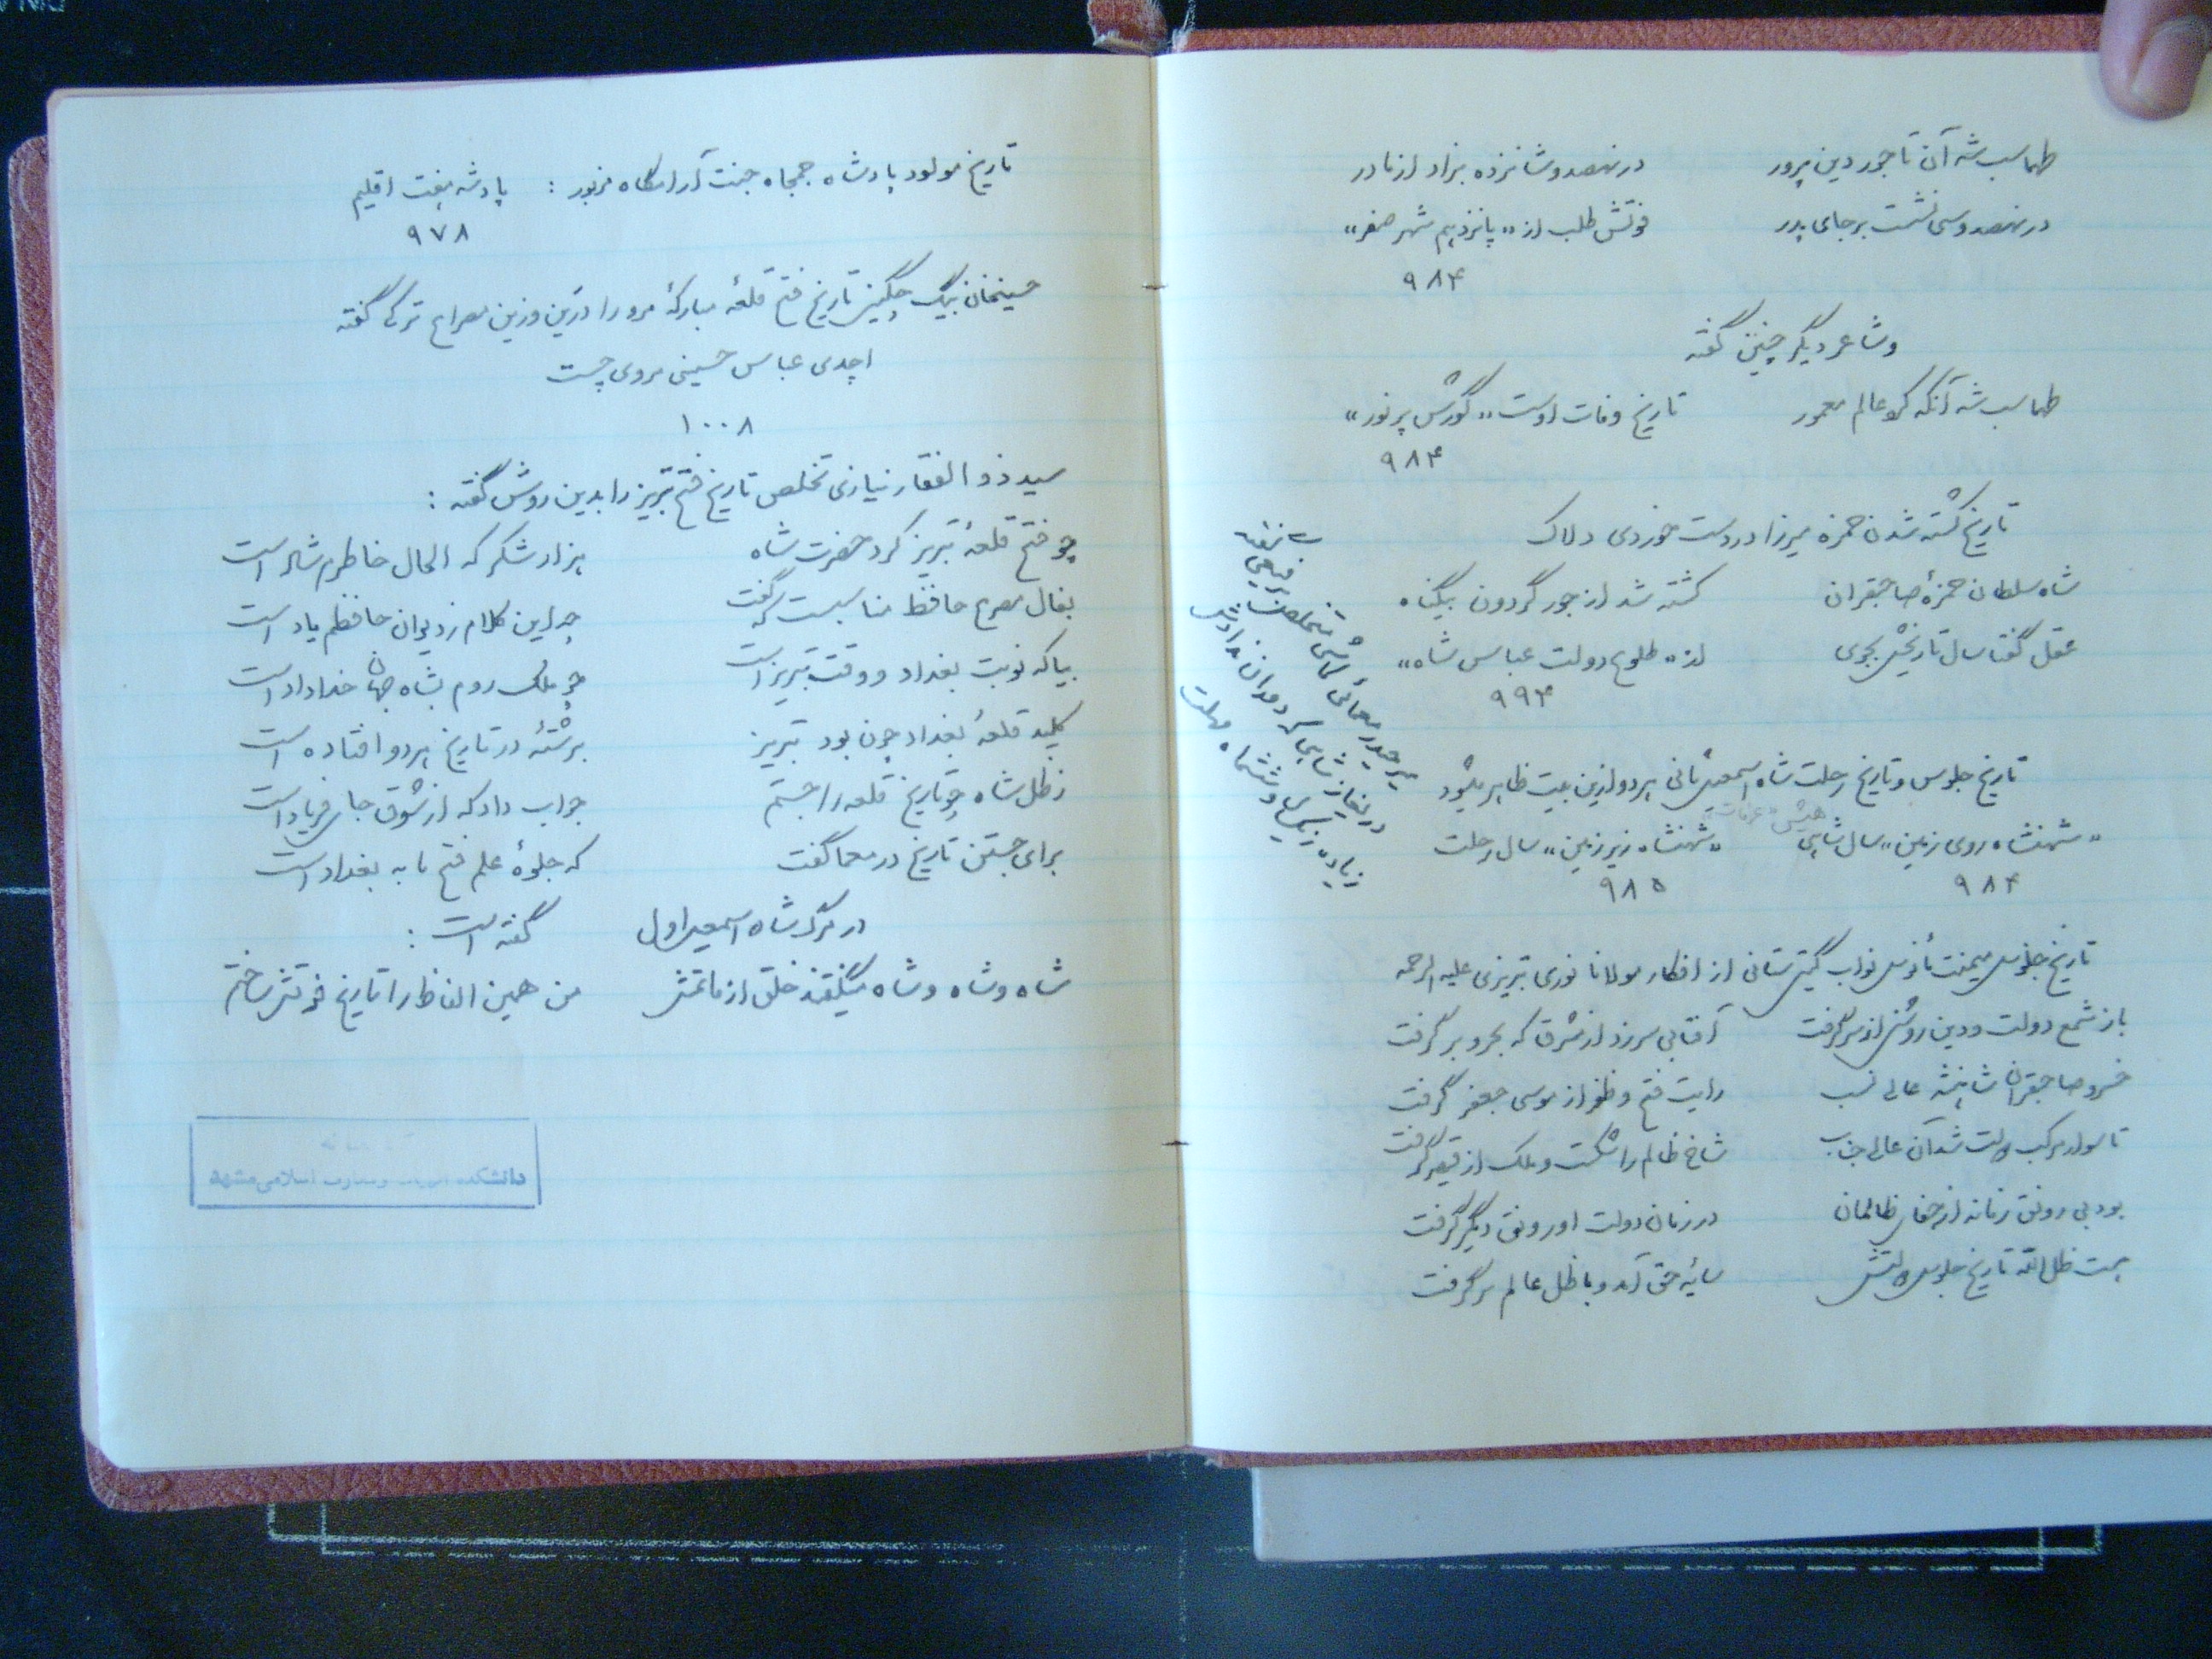 طهماسب شه آن تاجور دین پرور	در نهصد و شانزده بزاد از مادر
در نهصد و سی نشست بر جای پدر	فوتش طلب از «پانزدهم شهر صفر»
۹۸۴
و شاعر دیگر چنین گفته
طهماسب شه آنکه کرد عالم معمور	تاریخ وفات اوست «گورش پر نور»
۹۸۴
تاریخ کشته شدن حمزه میرزا در دست خوردی دلاک
شاه سلطان حمزهٔ صاحبقران	کشته شد از جور گردون بیگناه
عقل گفتا سال تاریخش بجوی	از «طلوع دولت عباس شاه»
۹۹۴
میر حیدر معمائی کاشی متخلص برفیعی گفته
دریغا ز شاهی که دوران ندادش
زیاده ز یکسال و ششماه مهلت
تاریخ جلوس و تاریخ رحلت شاه اسمعیل ثانی هر دو ازین بیت ظاهر میشود
«شهنشاه روی زمین» سال شاهی	«شهنشاه زیر زمین» سال رحلت
۹۸۴	۹۸۵
تاریخ جلوس میمنت مأنوس نواب گیتی ستانی از افکار مولانا نوری تبریزی علیه الرحمه
باز شمع دولت و دین روشنی از سر گرفت	آفتابی سر زد از مشرق که بحر و بر گرفت
خسرو صاحبقران شاهنشه عالی نسب	رایت فتح و ظفر از موسی جعفر گرفت
تا سوار مرکب دولت شد آن عالی جناب	شاخ ظالم را شکست و ملک از قیصر گرفت
بود بی رونق زمانه از جفای ظالمان	در زمان دولت او رونق دیگر گرفت
هست ظل الله تاریخ جلوس دولتش	سایهٔ حق آمد و با ظل عالم بر گرفت
تاریخ مولود پادشاه جمجاه جنت آرامگاه مزبور : پادشه هفت اقلیم
۹۷۸
حسینخان بیگ چگینی تاریخ فتح قلعه مبارکهٔ مرو را درین وزین مصراع ترکی گفته
اچدی عباس حسینی مروی چست
۱۰۰۸
سید ذوالفقار نیازی تخلص تاریخ فتح تبریز را بدین روش گفته :
چو فتح قلعهٔ تبریز کرد حضرت شاه	هزار شکر که الحال خاطرم شاد است
بفال مصرع حافظ مناسبست که گفت	چو این کلام ز دیوان حافظم یاد است
بیا که نوبت بغداد و وقت تبریز است	چو ملک روم بشاه جهان خداداد است
کلید قلعهٔ بغداد چون بود تبریز	برشتهٔ در تاریخ هر دو افتاده است
ز ظل شاه چو تاریخ قلعه را جستم	جواب داد که از شوق جای فریاد است
برای جستن تاریخ در معما گفت	که جلوهٔ علم فتح ما به بغداد است
در مرگ شاه اسمعیل اول	گفته است :
شاه و شاه و شاه میگفتند خلق از ماتمش	من همین الفاظ را تاریخ فوتش ساختم
دانشکده الهیات و معارف اسلامی مشهد